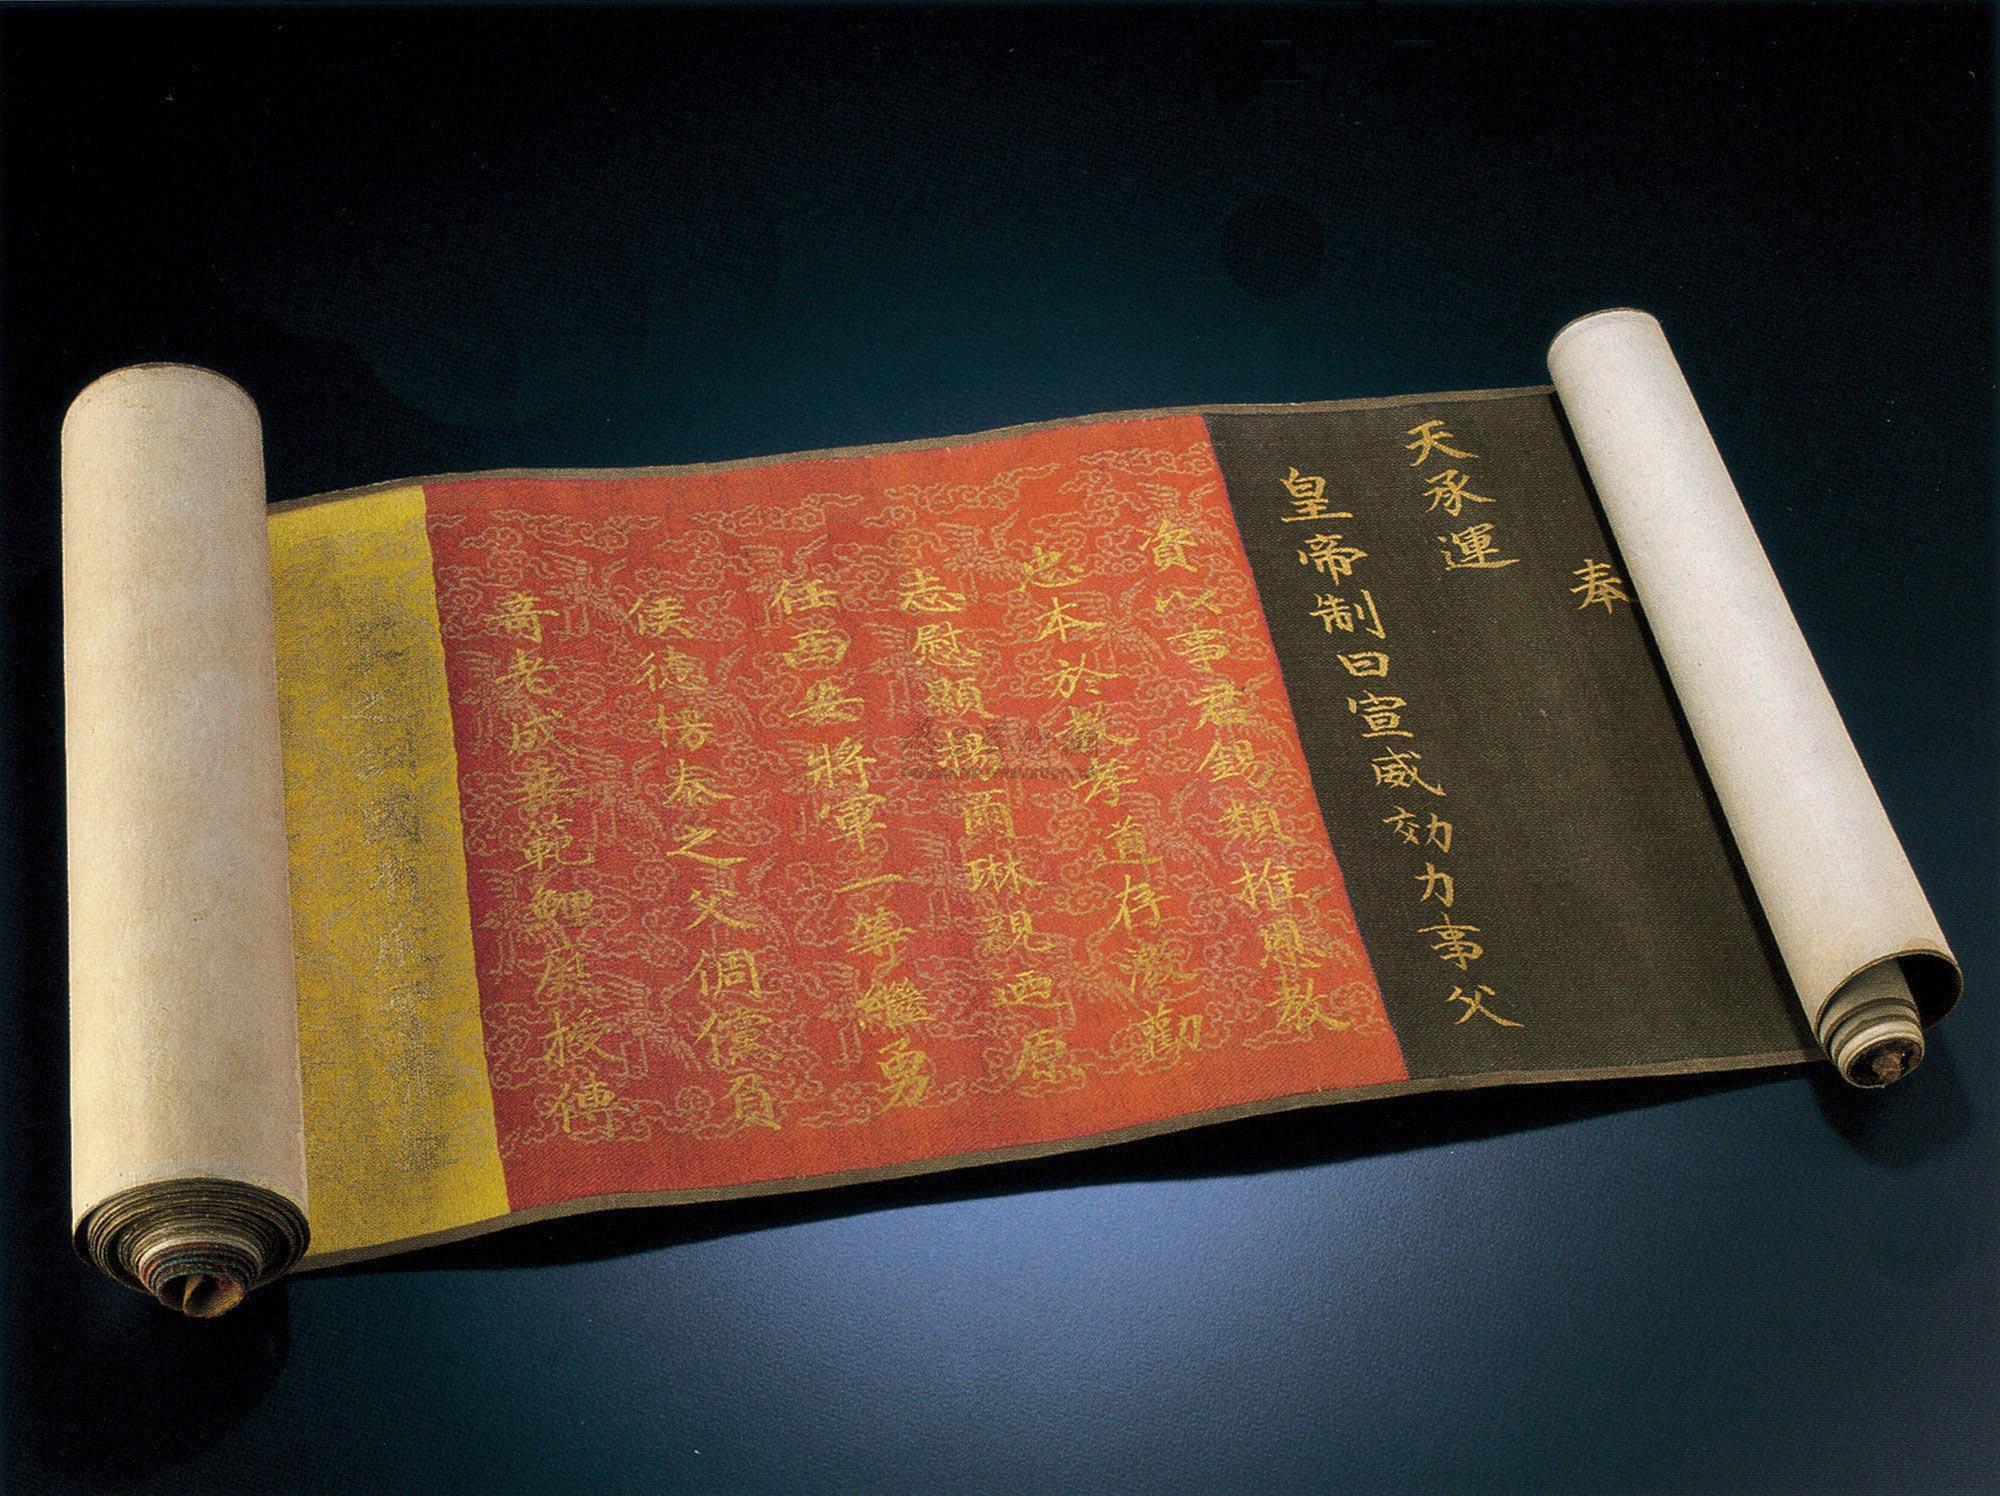 奉
天承運
皇帝制曰宣威効力事父
資以事君錫類推恩教
忠本於教孝道存激勸
志慰顯揚爾琳親迺原
任西安將軍一等繼勇
侯德楞泰之父倜儻負
竒老成垂範鯉庭授傳